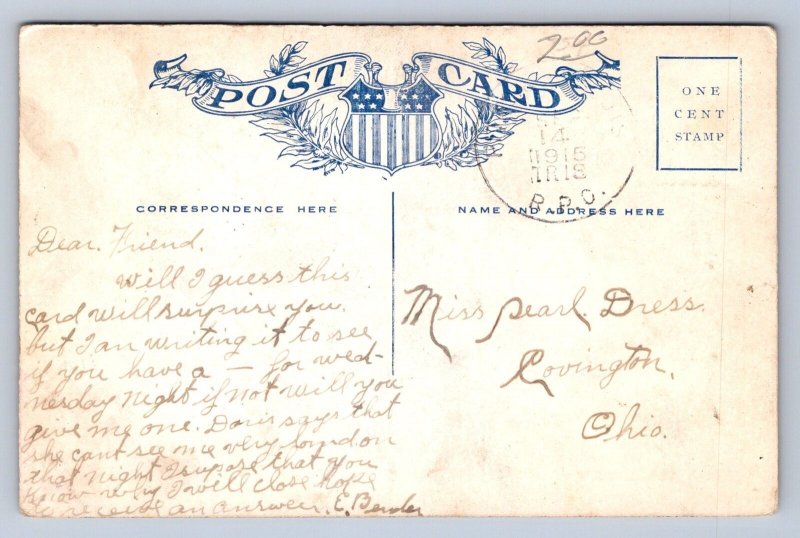 2.00
POST CARD
ONE
CENT
STAMP
14
1915
R.P.O.
CORRESPONDENCE HERE
NAME AND ADDRESS HERE
Dear. Friend.
will I guess this
card will surprise you.
but I am writing it to see
if you have a — for wed-
nesday night if not will you
give me one. Doris says that
she cant see me very on
that night I supose that you
know why I will close hope
to receive an answer. E. Bender
Miss Pearl. Dress.
Covington,
Ohio.